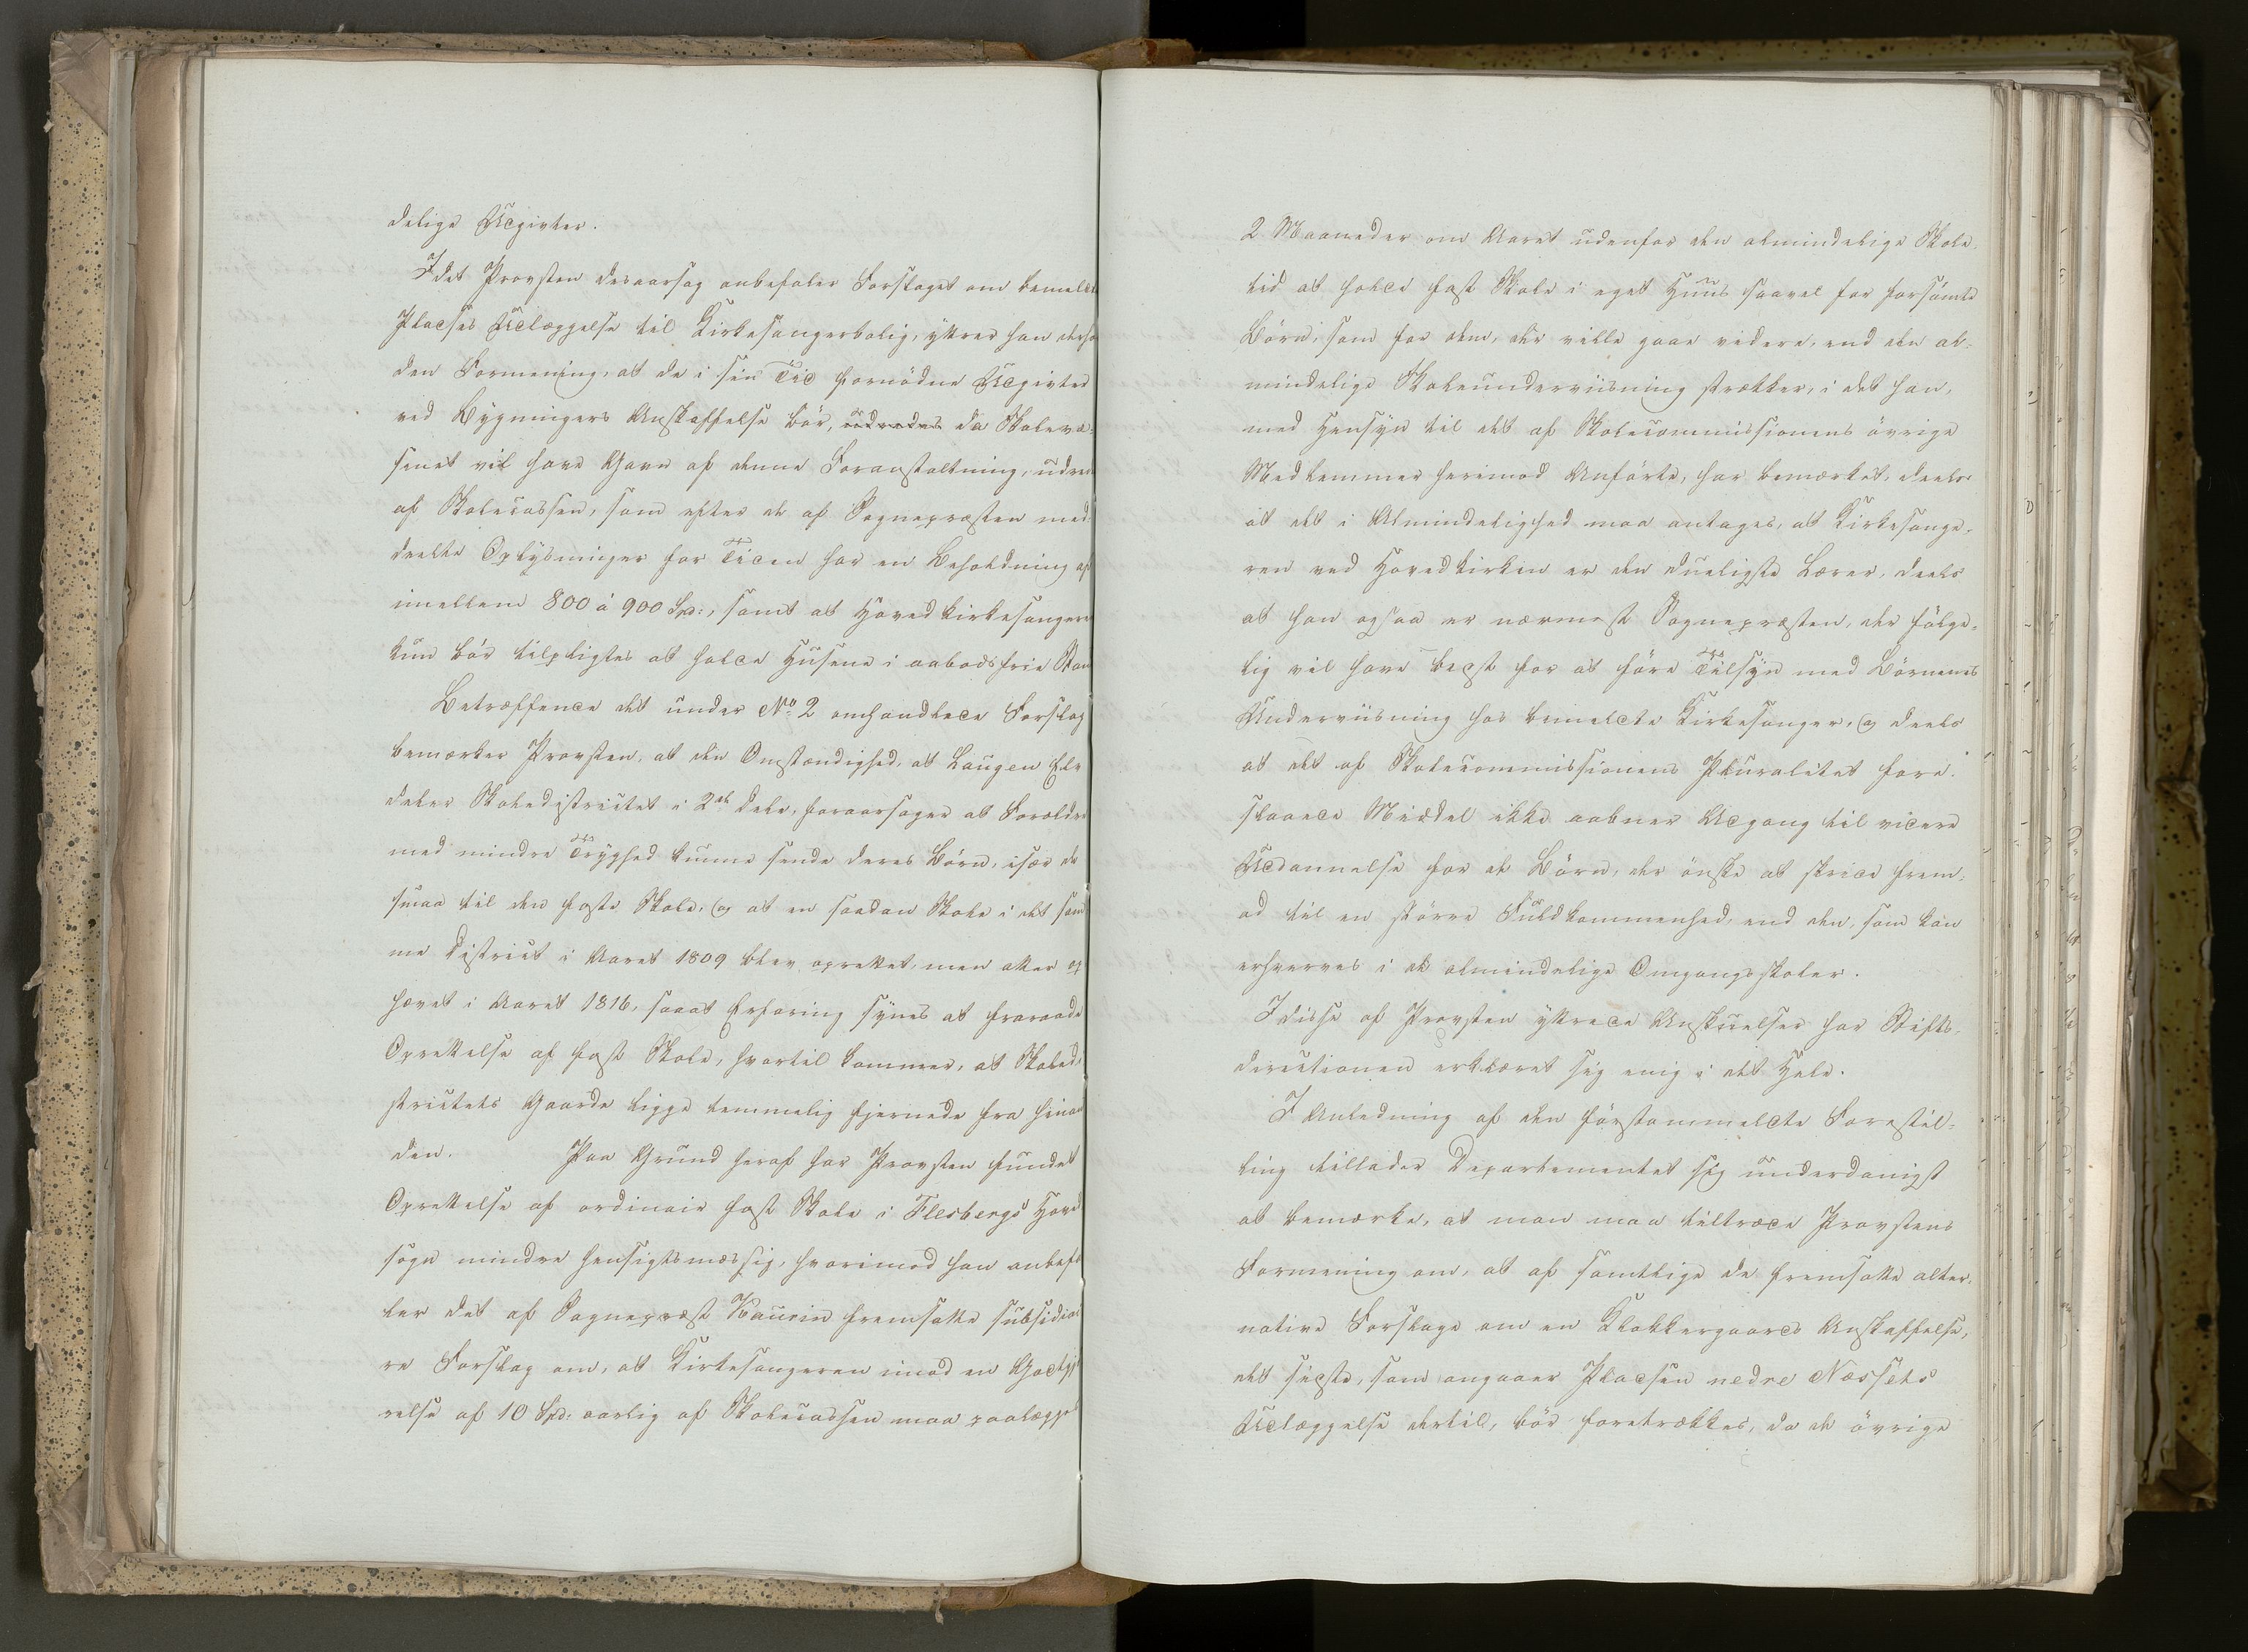 delige Udgivter.
Idet Provsten desaarsag anbefaler Forslaget om bemeldte
Pladses Udlæggelse til Kirkesangerbolig, yttrer han derhos
den Formening, at de i sin Tid fornödne Udgivter
ved Bygningers Anskaffelse bör, udredes da Skolevæ-
senet vil have Gavn af denne Foranstaltning, udredes
af Skolecassen, som efter de af Sognepræsten med-
deelte Oplysninger for Tiden har en Beholdning af
imellem 800 á 900 Spd:, samt at Hovedkirkesangeren
kun bör tilpligtes at holde Husene i aabodsfrie Stand
Betræffende det under No 2 omhandlede Forslag
bemærker Provsten, at den Omstændighed, at Laugen Elv
deler Skoledistrictet i 2de Dele, foraarsager at Forældre
med mindre Tryghed kunne sende deres Börn, især de
smaa til den faste Skole, og at en saadan Skole i det sam-
me District i Aaret 1809 blev oprettet, men atter op-
hævet i Aaret 1816, saaat Erfaring synes at fraraade
Oprettelse af fast Skole, hvortil kommer, at Skoledi-
strictets Gaarde ligge temmelig fjernede fra hinan-
den. Paa Grund heraf har Provsten fundet
Oprettelse af ordinair fast Skole i Flesbergs Hoved-
sogn mindre hensigtsmæssig, hvorimod han anbefa-
ler det af Sognepræst Kaurin fremsatte subsidiai-
re Forslag om, at Kirkesangeren imod en Godtgjö-
relse af 10 Spd: aarlig af Skolecassen maa paalægges
2 Maaneder om Aaret udenfor den almindelige Skole-
tid at holde fast Skole i eget Huus saavel for forsömte
Börn, som for dem, der ville gaae videre, end den al-
mindelige Skoleunderviisning strækker, i det han,
med Hensyn til det af Skolecommissionens övrige
Medlemmer herimod Anförte, har bemærket, deels
at det i Almindelighed maa antages, at Kirkesange-
ren ved Hovedkirken er den dueligste Lærer, deels
at han ogsaa er nærmest Sognepræsten, der fölge-
lig vil have best for at före Tilsyn med Börnenes
Underviisning hos bemeldte Kirkesanger, og deels
at det af Skolecommissionens Pluralitet fore-
slaaede Middel ikke aabner Adgang til videre
Uddannelse for de Börn, der önske at skride frem-
ad til en större Fuldkommenhed, end den, som kan
erhverves i de almindelige Omgangsskoler.
I disse af Provsten yttrede Anskuelser har Stifts-
directionen erklæret sig enig i det Hele.
I Anledning af den förstommeldte Forestil-
ling tillader Departementet sig underdanigst
at bemærke, at man maa tiltræde Provstens
Formening om, at af samtlige de fremsatte alter-
native Forslage om en Klokkergaards Anskaffelse,
det sidste, som angaaer Pladsen nedre Næssets
Udlæggelse dertil, bör foretrækkes, da de övrige